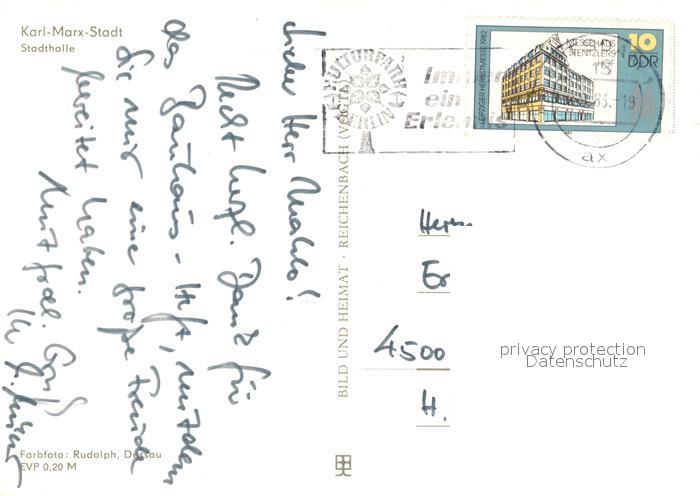 Karl-Marx-Stadt
Stadthalle
Lieber Herr
Recht herzl. Dank für
das Bauhaus-Heft, mit dem
Sie mir eine große Freude
bereitet haben.
Mit frdl. Gruß
Ihr
Farbfoto: Rudolph, Dessau
EVP 0,20 M
BILD UND HEIMAT · REICHENBACH (VOGTL
KULTURPARK
BERLIN
Immer
ein
Erlebnis
LEIPZIGER HERBSTMESSE 1982
MESSEHAUS
STENTZLERS
HOF
10
DDR
83.-19
ax
Herrn
4500
H.
privacy protection
Datenschutz